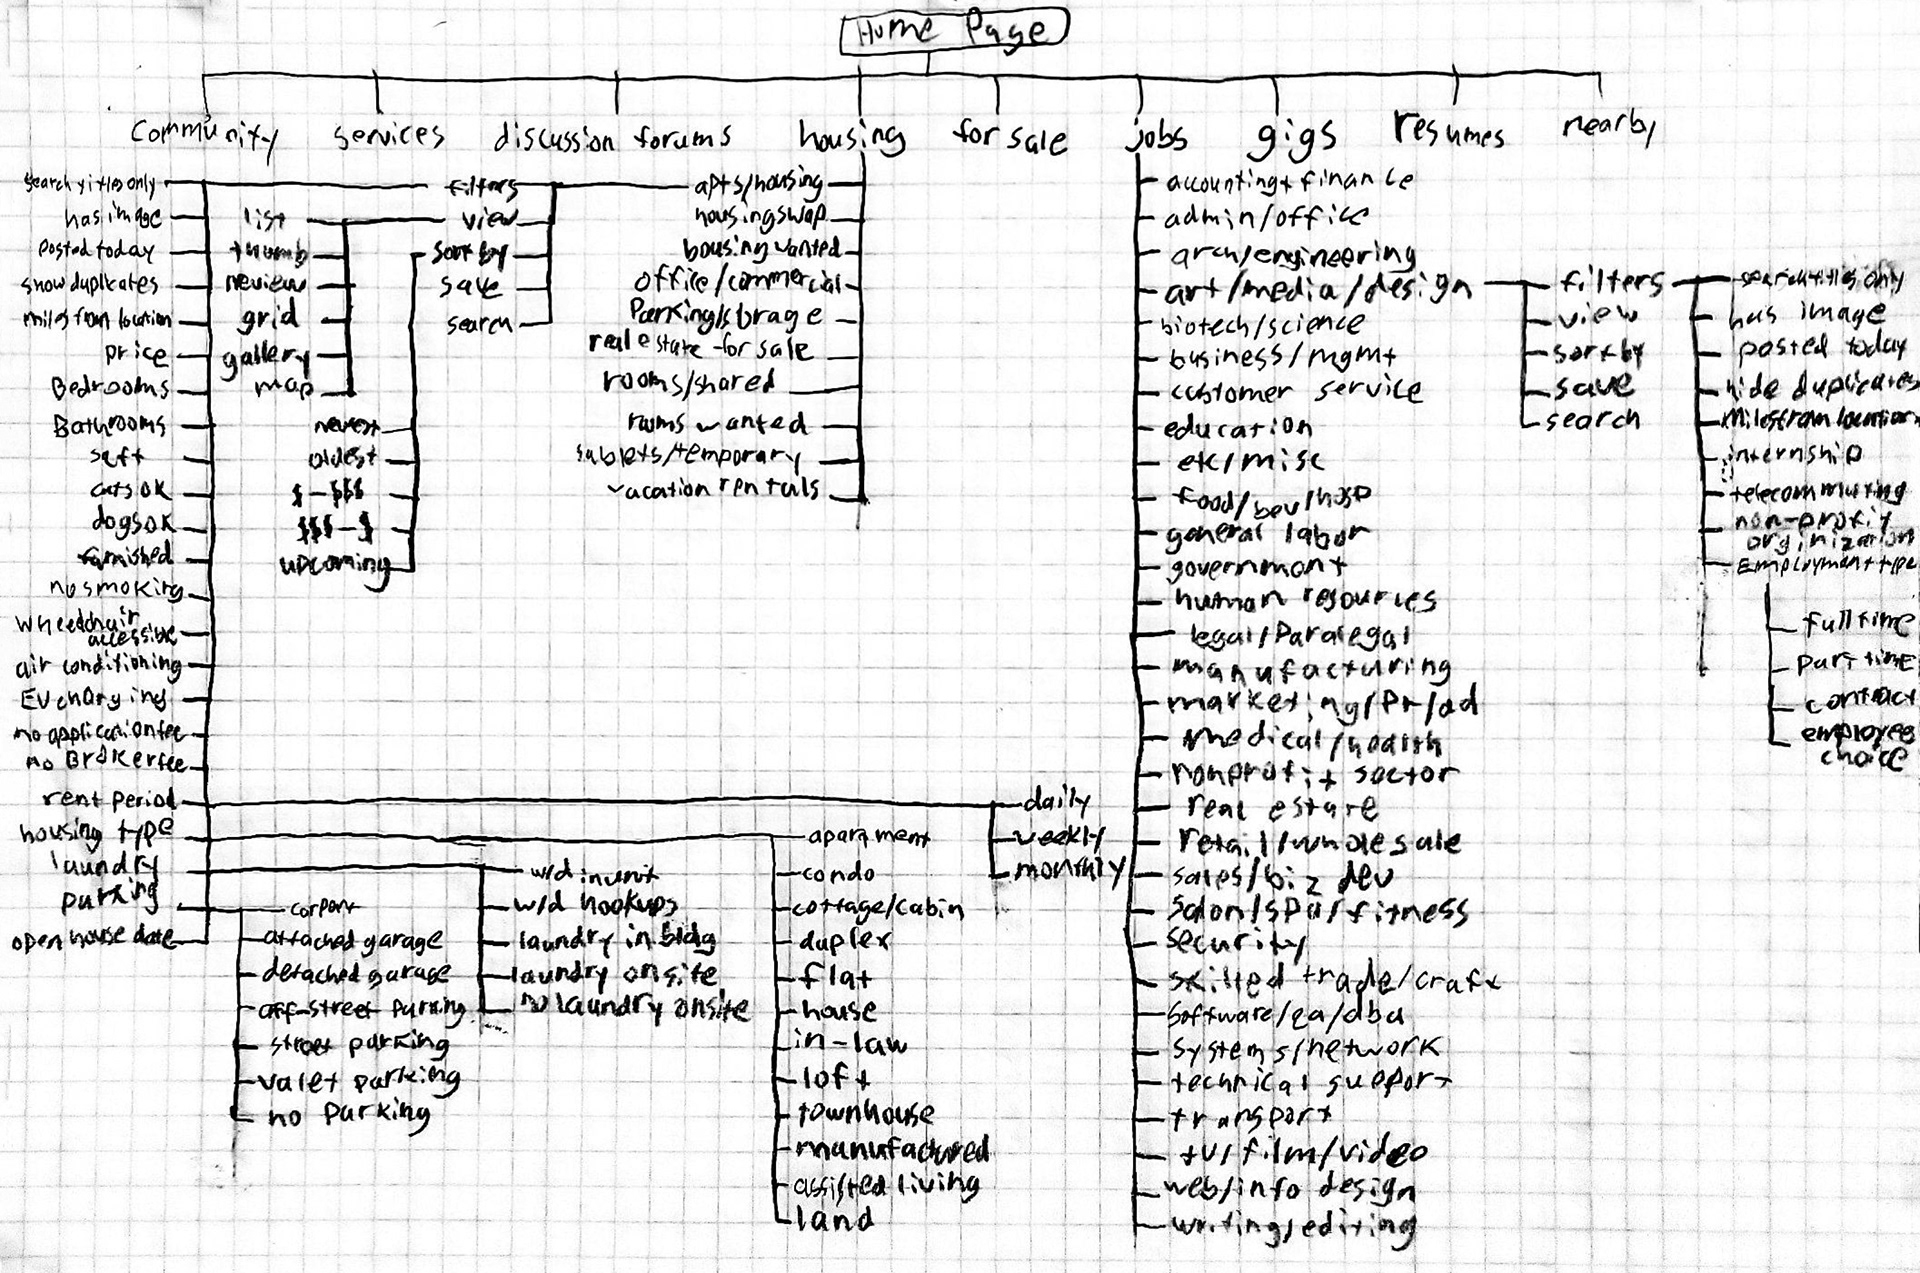 Home Page
community
services
discussion forums
housing
for sale
jobs
gigs
resumes
nearby
search titles only
has image
posted today
show duplicates
miles from location
price
Bedrooms
Bathrooms
sqft
cats ok
dogs ok
furnished
no smoking
wheelchair
accessible
air conditioning
EV charging
no application fee
no Broker fee
rent period
housing type
laundry
parking
open house date
list
thumb
preview
grid
gallery
map
newest
oldest
$-$$$
$$$-$
upcoming
filters
view
sort by
save
search
apts/housing
housing swap
housing wanted
office/commercial
Parking/storage
real estate for sale
rooms/shared
rooms wanted
sublets/temporary
vacation rentals
daily
weekly
monthly
apartment
condo
cottage/cabin
duplex
flat
house
in-law
loft
townhouse
manufactured
assisted living
land
w/d in unit
w/d hookups
laundry in bldg
laundry on site
no laundry onsite
carport
attached garage
detached garage
off-street parking
street parking
valet parking
no parking
accounting+finance
admin/office
arch/engineering
art/media/design
biotech/science
business/mgmt
customer service
education
etc/misc
food/bev/hosp
general labor
government
human resources
legal/paralegal
manufacturing
marketing/pr/ad
medical/health
nonprofit sector
real estate
retail/wholesale
sales/biz dev
salon/spa/fitness
security
skilled trade/craft
software/qa/dba
systems/network
technical support
transport
tv/film/video
web/info design
writing/editing
filters
view
sort by
save
search
search titles only
has image
posted today
hide duplicates
miles from location
internship
telecommuting
non-profit
orginization
Employment type
full time
part time
contract
employee
choice